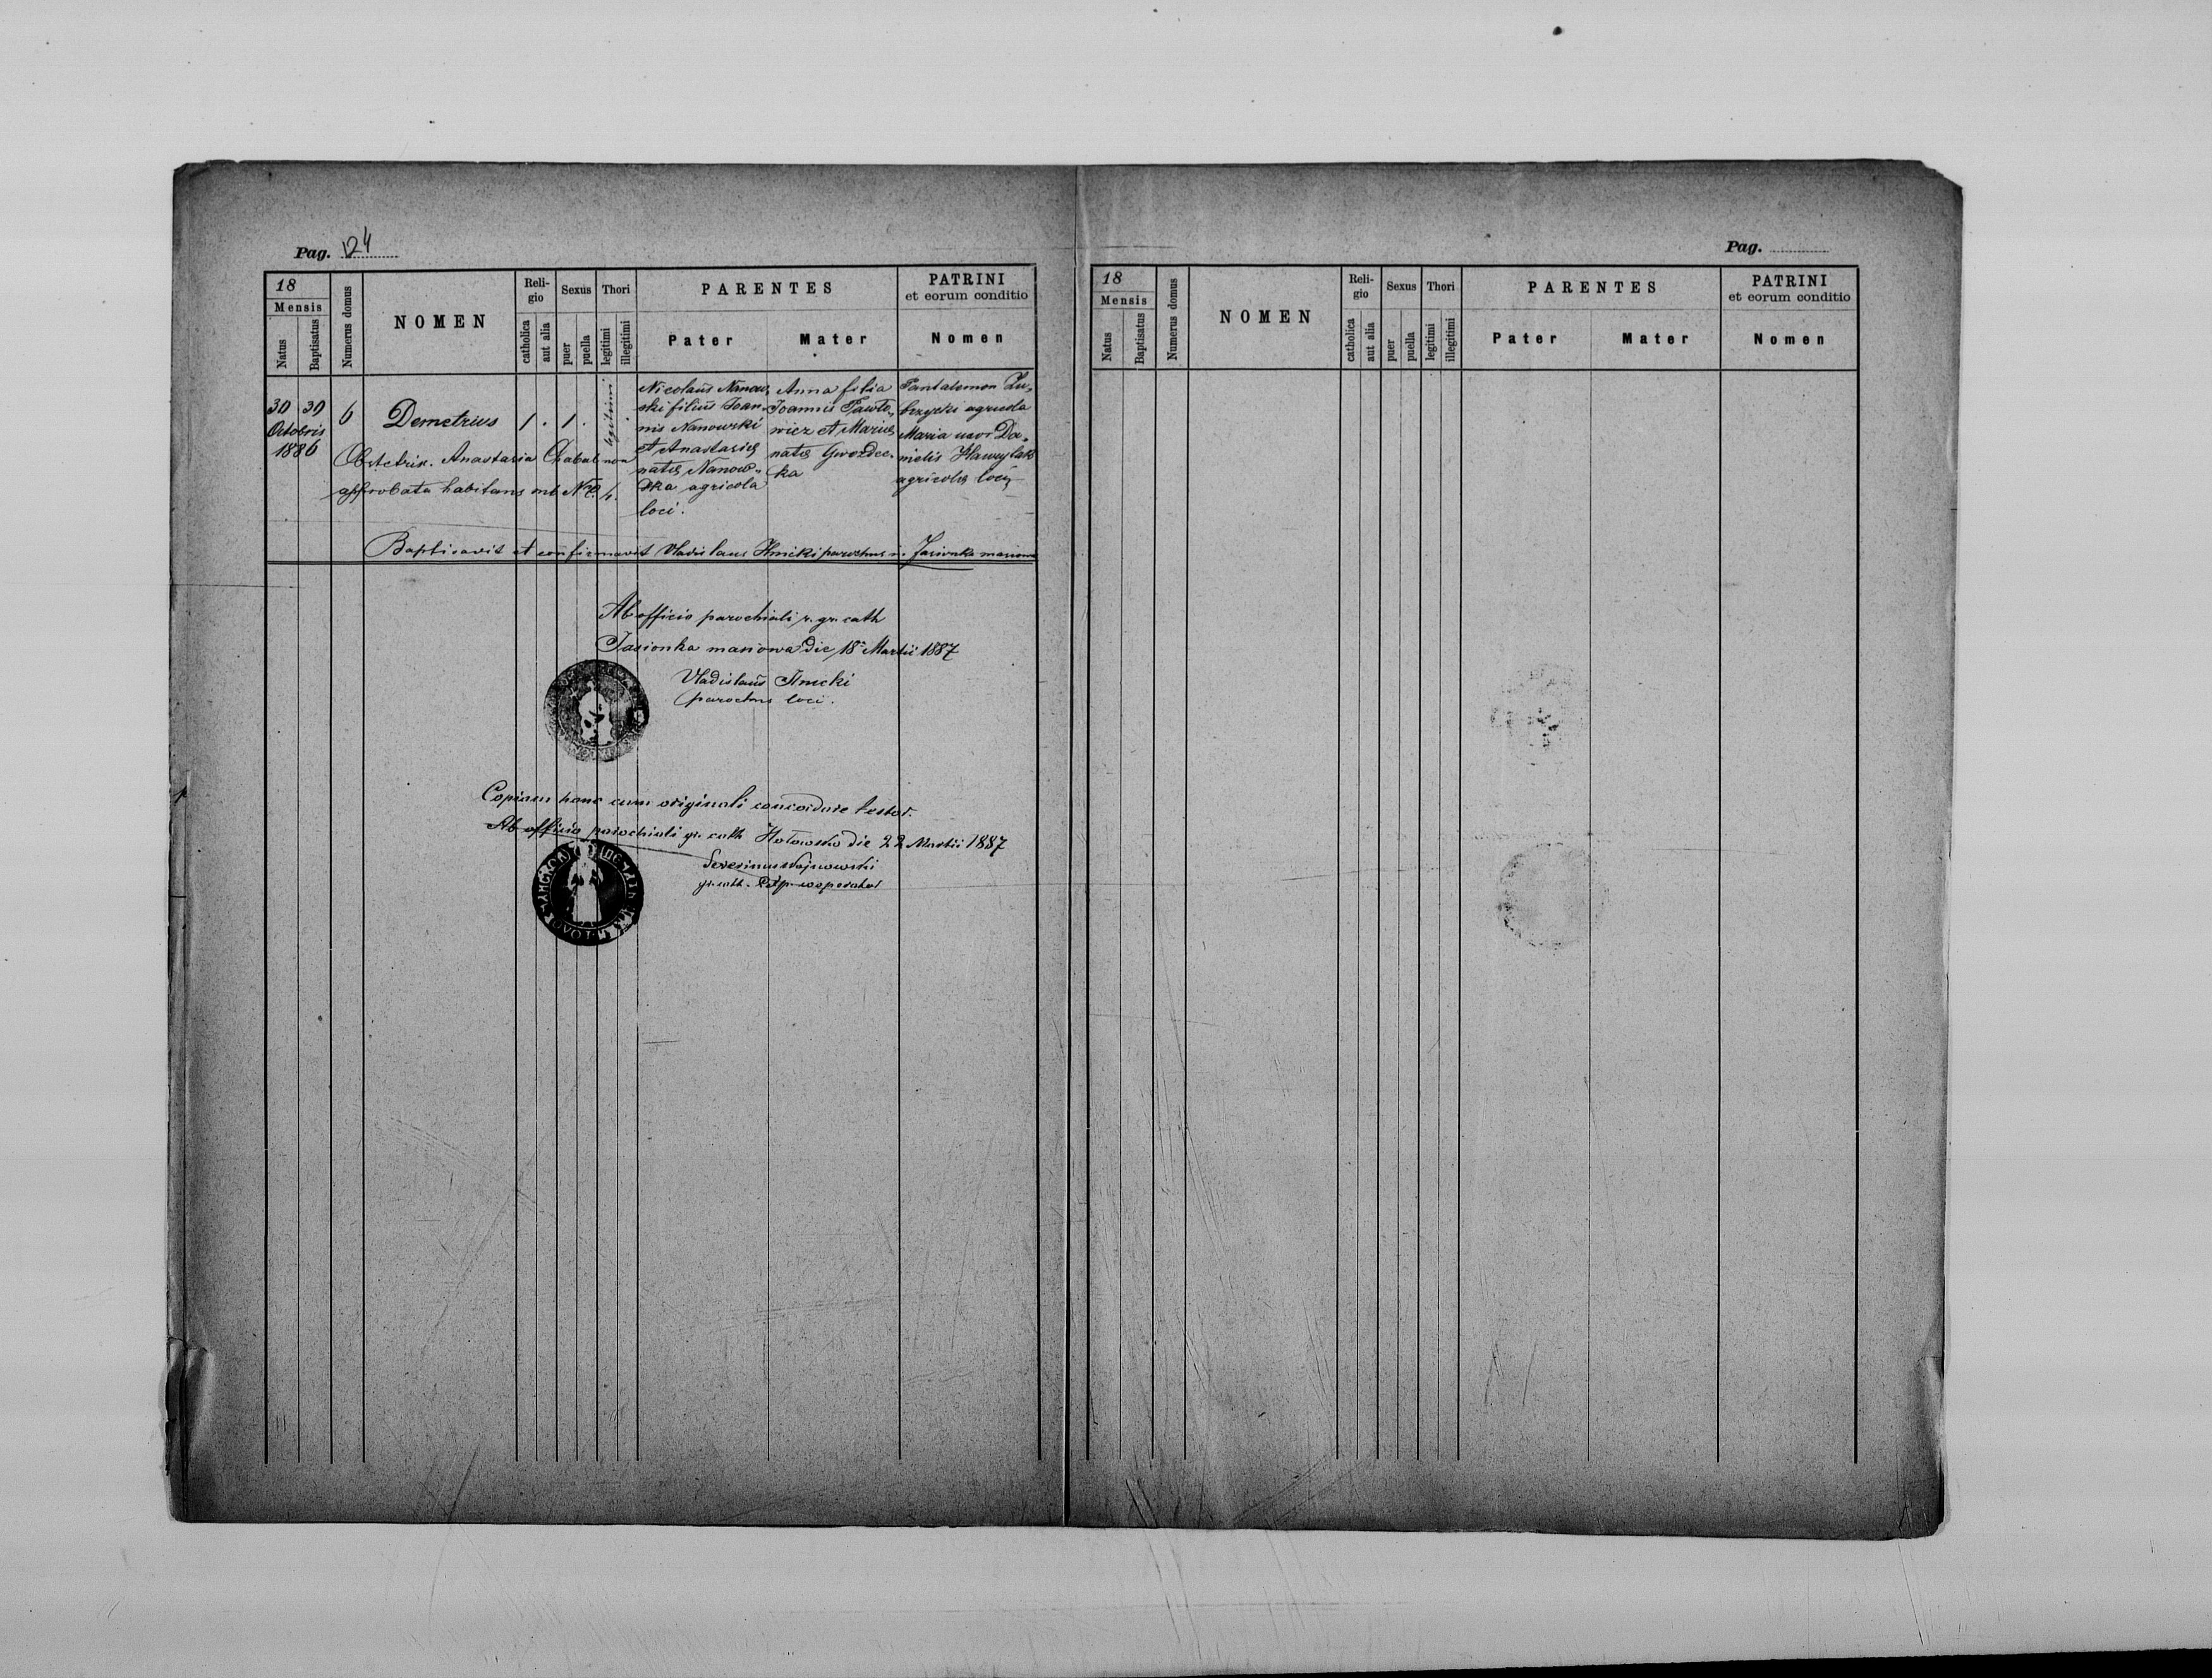 Pag. 124
18
Mensis
Natus
Baptisatus
Numerus domus
NOMEN
Religio
catholica
aut alia
Sexus
puer
puella
Thori
legitimi
illegitimi
PARENTES
Pater
Mater
PATRINI
et eorum conditio
Nomen
30 30
Octobris
1886
6
Demetrius
1 .
1 .
legitimi
Nicolaus Nanow„
ski filius Joan„
nis Nanowski
et Anastasię
natę Nanow„
ska agricola
loci.
Anna filia
Joannis Pawło„
wicz et Marię
natę Gwozdec„
ka
Pantalemon Zu„
brzycki agricola
Maria uxor Da„
nielis Hawrylak
agricolę loci
Obstetrix. Anastasia Chabal non
approbata habitans sub Nro
Baptisavit et confirmavit Vladislaus Ilnicki parochus in Jasionka masiowa
Ab officio parochiali r. gr. cath
Jasionka masiowa die 18 Martii 1887
Vladislaus Ilnicki
parochus loci.
Copiam hanc cum originali concordare testor.
Ab officio parochiali gr. cath Hołowsko die 22 Martii 1887
Severinus Wojnowski
gr. cath. cooperator
Pag.
18
Mensis
Natus
Baptisatus
Numerus domus
NOMEN
Religio
catholica
aut alia
Sexus
puer
puella
Thori
legitimi
illegitimi
PARENTES
Pater
Mater
PATRINI
et eorum conditio
Nomen